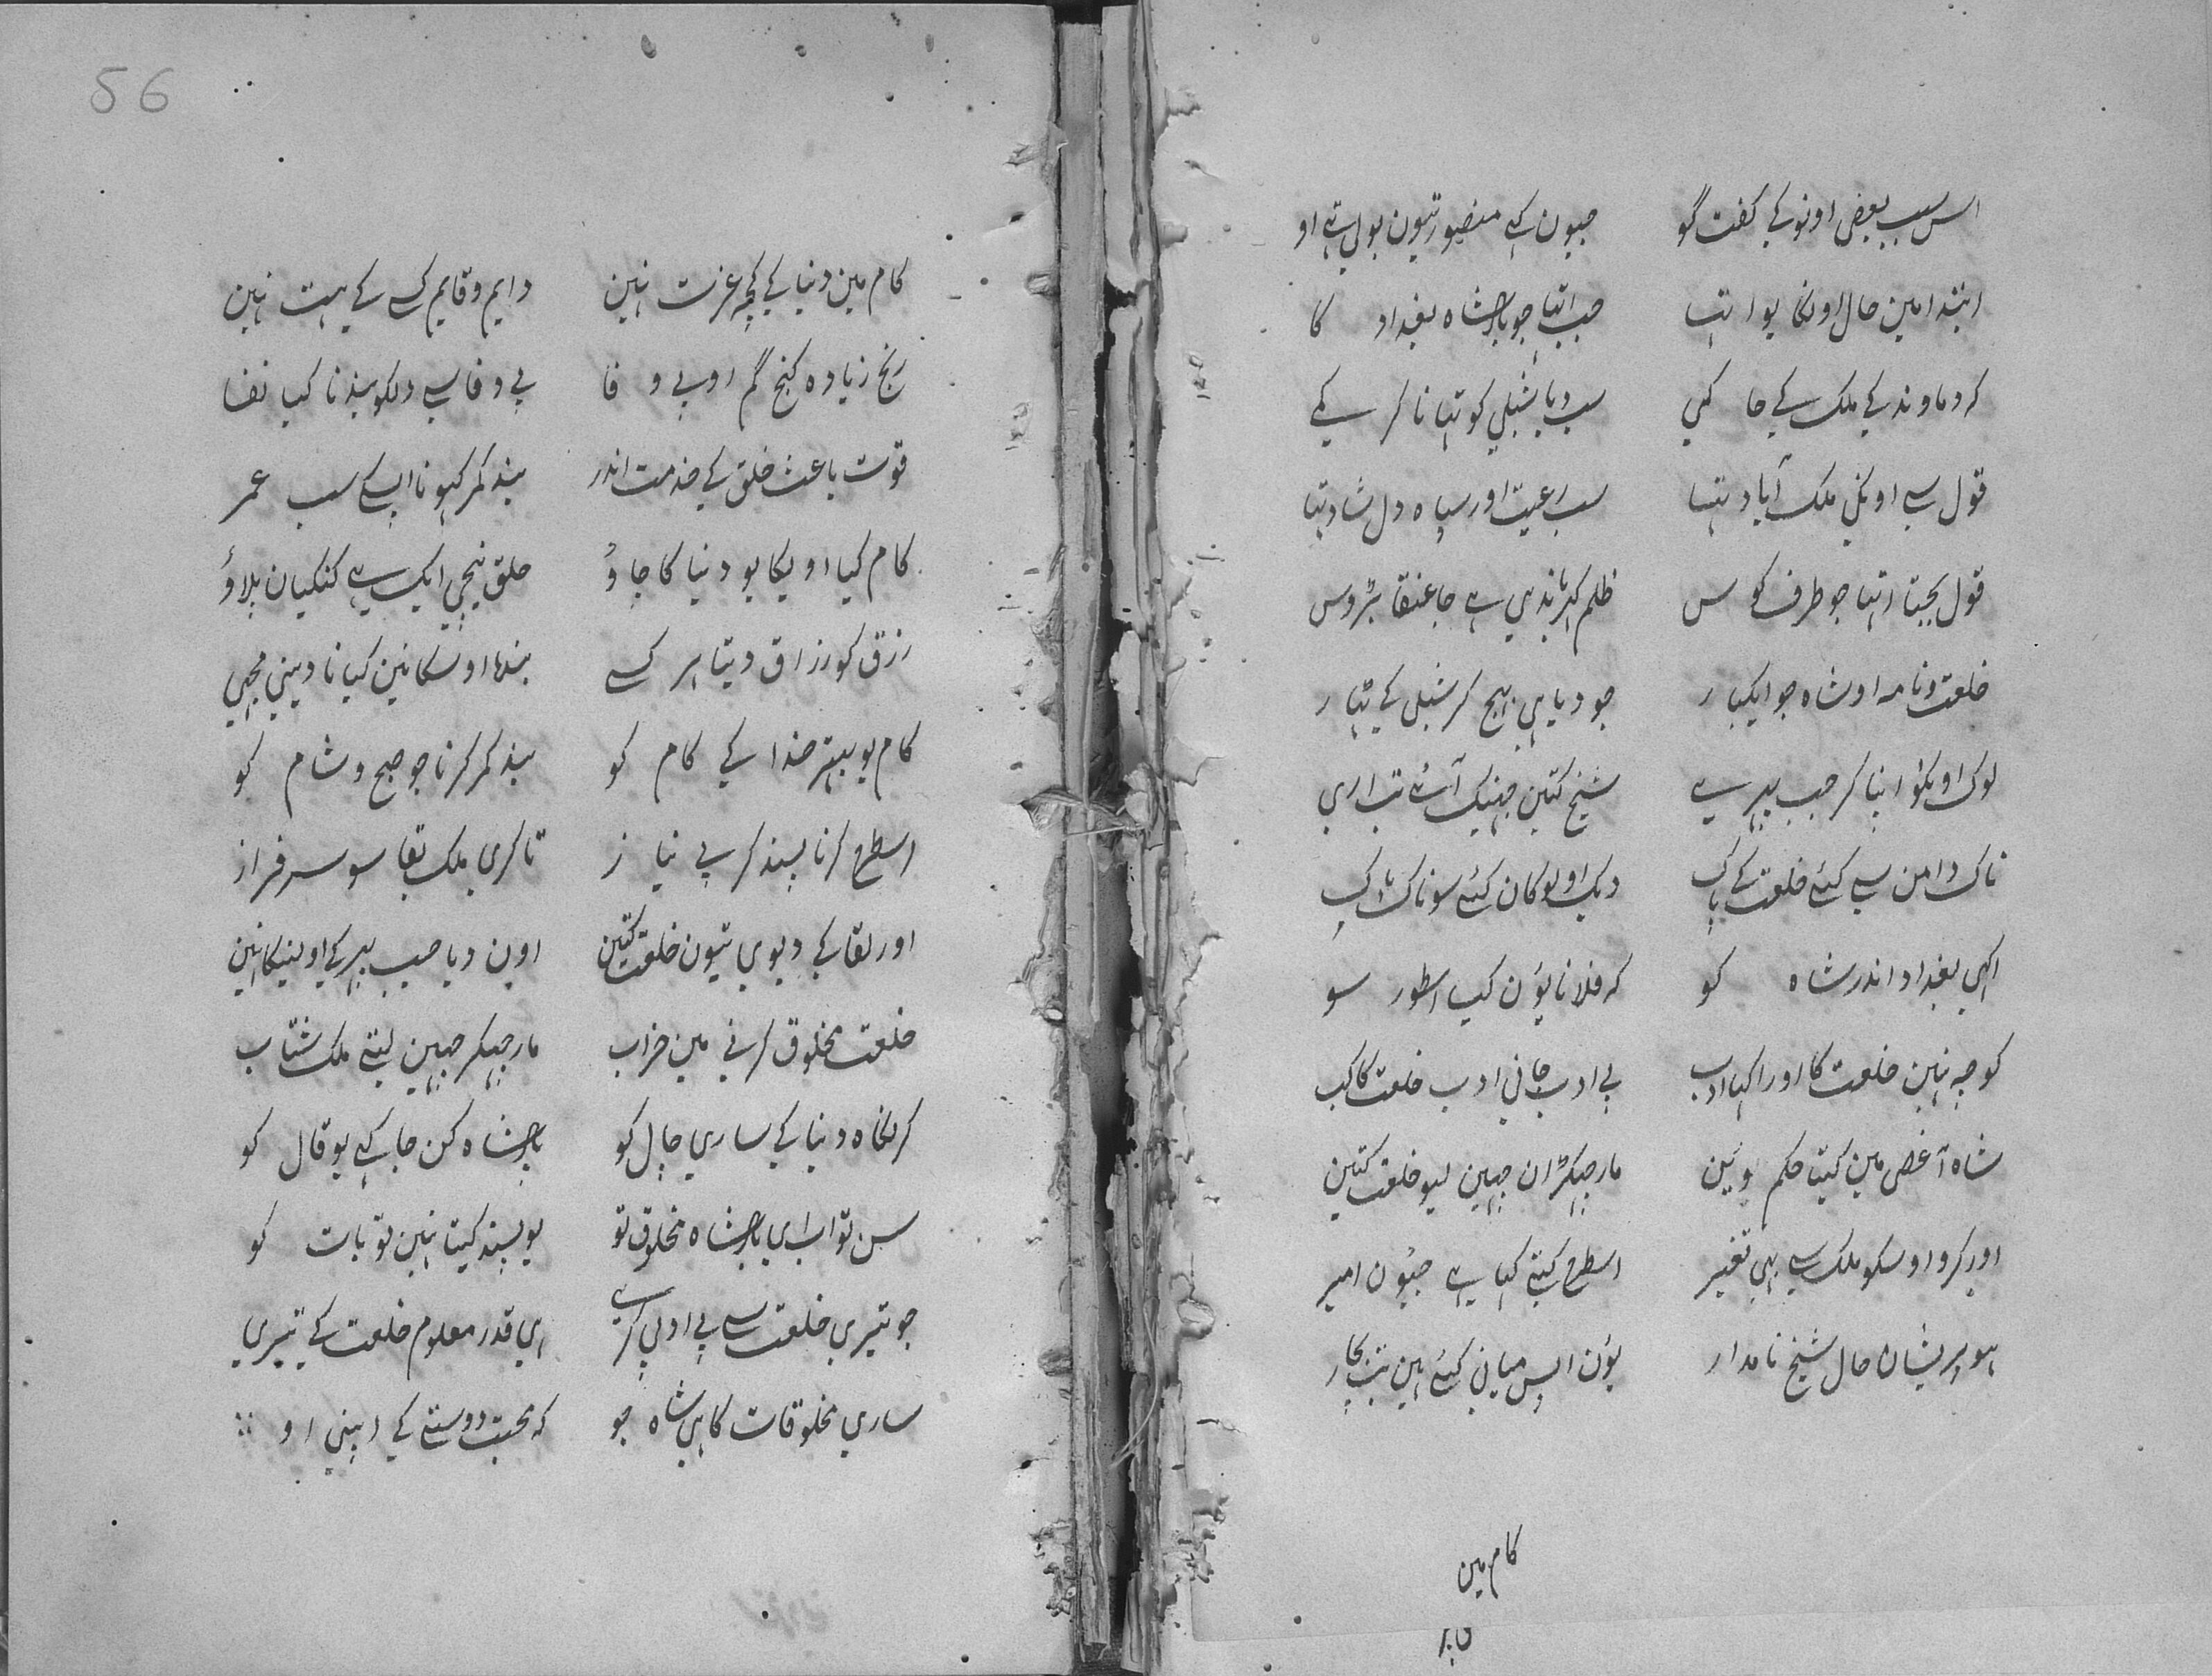 اس سبب بعض اونو کے گفت گو جیون کہے منصور تیون بولیتے او
ابتدا مین حال اونکا یو اتہا جب اتہا جو بادشاہ بغداد کا
کہ دماوند کے ملک کے جا گی سب دیا شبلی کو تہانا کر کے
قول سے اونکی ملک آباد تہا سب رعیت اور سپاہ دل شاد تہا
قول بجتا اتہا جو طرف کوس ظلم
خلعت و نامہ او شاہ جو ایکبار جو دیا ہی بہیج کر شبلی کے تہار
لوک اونکو اپنا کر جب پہیرے شیخ کتین چہینک آئے تب اری
ناک دامن سے کئے خلعت کے پاک دیک او لوکان کئے سو ناک
اکہی بغداد اندر شاہ کو کہ فلانا یون کیا اسطور سو
کوچہ نہین خلعت کا اور اکہا ادب بے ادب جانی ادب خلعت کا کب
شاہ آغصی مین کیتا حکم وئین مار جہکڑ ان چہین لیو خلعت کتین
اور کرو اوسکو ملک سے بہی تغیر اسطرح کیتے کہا ہے جیون امیر
ہو پریشان حال شیخ نامدار یون اپس میانی کئے ہین تب بچار
کام مین
56
کام مین دنیا کے کچہ عزت نہین دایم و قایم کسے کے ہت نہین
رنج زیادہ گنج گم او بے وفا بے وفا سے دلکو بندنا کیا نفا
قوت باعث خلق کے خدمت اندر بند کمر کہونا اپسکے سب عمر
کام کیا اویکا یو دنیا کا چاؤ حلق نیچی ایک ہے کنکیان پلاؤ
رزق کو رزاق دیتا ہر کسے بندا اوسکا نین کیا نا دینی مجہی
کام یو بہتر خدا کے کام کو بند کمر کرنا جو صبح و شام کو
اسطرح کرنا پسند کر بے نیاز تا کری ملک بقا سو سرفراز
اور لقا کے دیوی تیون خلعت کتین اون دیا جب پہیر کے او لینکا نہین
خلعت مخلوق کرنے مین خراب مار جہکر چہین لیتے ملک شتاب
کر نگاہ دنیا کے ساری چال کو بادشاہ کن جا کہے یو قال کو
سن تو اب ای بادشاہ مخلوق تو یو پسند کیتا نہین تو بات کو
جو تیری خلعت سے بے ادبی کرے ہی قدر معلوم خلعت کے تیری
ساری مخلوقات کا ہی شاہ جو کہ محبت دوستے کے اپنی او